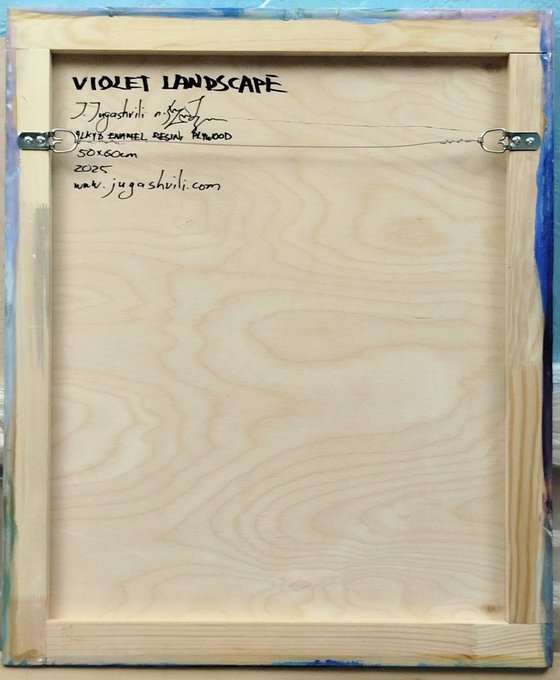 VIOLET LANDSCAPE
J. Jugashvili
ALKYD ENAMEL RESING PLYWOOD
50x60cm
2025
www.jugashvili.com